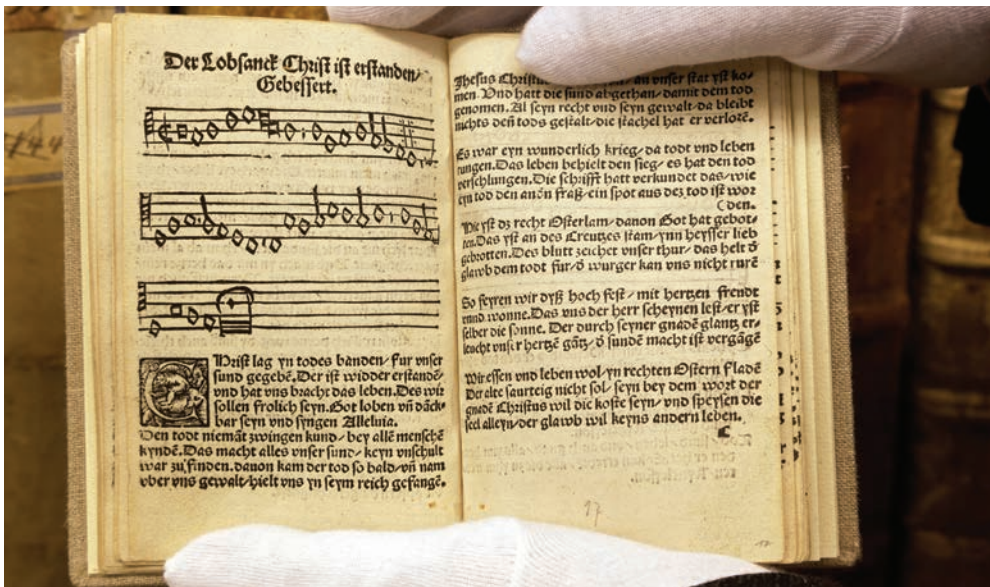 Der Lobsanck Christ ist erstanden/
Gebessert.
CHrist lag yn todes banden/ fur vnser
sund gegebē. Der ist widder erstandē/
vnd hat vns bracht das leben. Des wir
sollen frolich seyn. Got loben vn̄ danck-
bar seyn vnd syngen Alleluia.
Den todt niemāt zwingen kund/ bey allē menschē
kyndē. Das macht alles vnser sund/ keyn vnschult
war zu finden. dauon kam der tod so bald/ vn̄ nam
vber vns gewalt/ hielt vns yn seym reich gefangē.
Jhesus Christus an vnser stat yst ko-
men. Vnd hatt die sund abgethan/ damit dem tod
genomen. Al seyn recht vnd seyn gewalt/ da bleibt
nichts deñ tods gestalt/ die stachel hat er verlorē.
Es war eyn wunderlich krieg/ da todt vnd leben
rungen. Das leben behielt den sieg/ es hat den tod
verschlungen. Die schrifft hatt verkundet das/ wie
eyn tod den andn̄ fraß/ ein spot aus dez tod ist wor
(den.
Hie yst dz recht Osterlam/ dauon Got hat gebot-
ten. Das yst an des Creutzes stam/ ynn heysser lieb
gebrotten. Des blutt zeichet vnser thur/ das helt d̄
glawb dem todt fur/ d̄ wurger kan vns nicht rurē
So feyren wir dyß hoch fest/ mit hertzen freudt
vnnd wonne. Das vns der herr scheynen lest/ er yst
selber die sonne. Der durch seyner gnadē glantz er-
leucht vnser hertzē gātz/ d̄ sundē macht ist vergāgē
Wir essen vnd leben wol/ yn rechten Ostern fladē
Der alte saurteig nicht sol/ seyn bey dem wort der
gnadē Christus wil die koste seyn/ vnd speysen die
seel alleyn/ der glawb wil keyns andern leben.
17